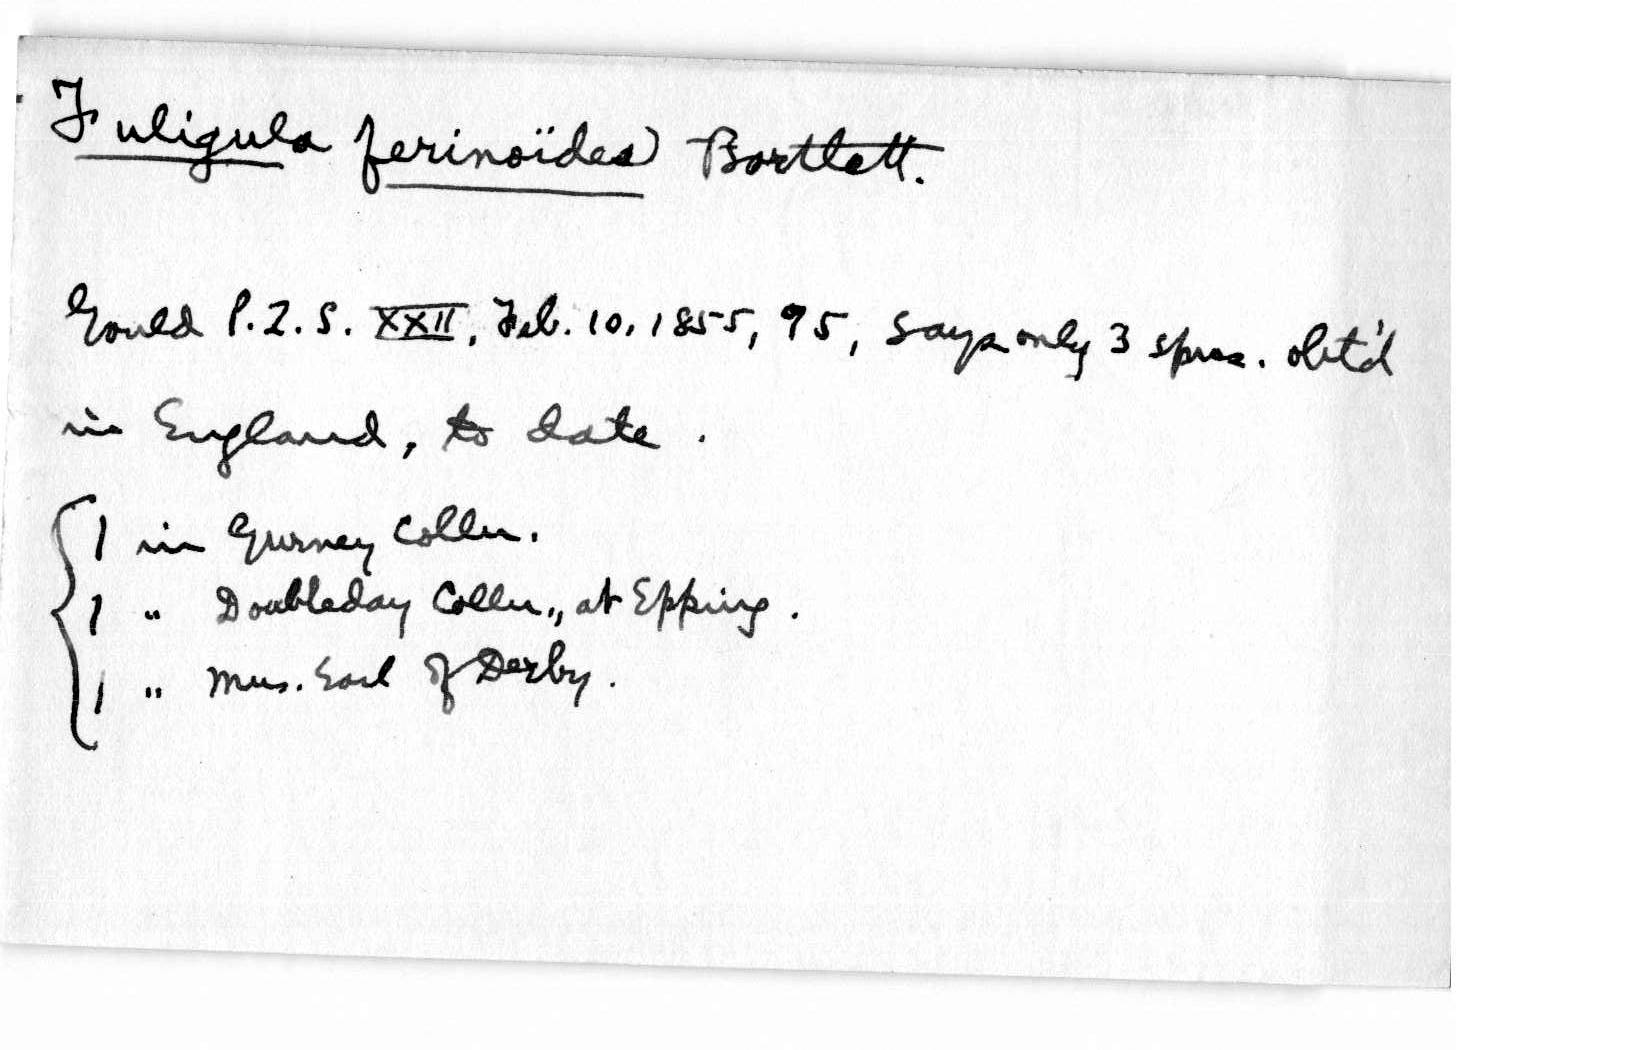 Fuligula ferinoïdes Bartlett.
Gould P.Z.S. XXII, Feb. 10, 1855, 95, says only 3 spms. obt'd
in England, to date.
1 in Gurney Colln.
1 " Doubleday Colln., at Epping.
1 " Mus. Earl of Derby.